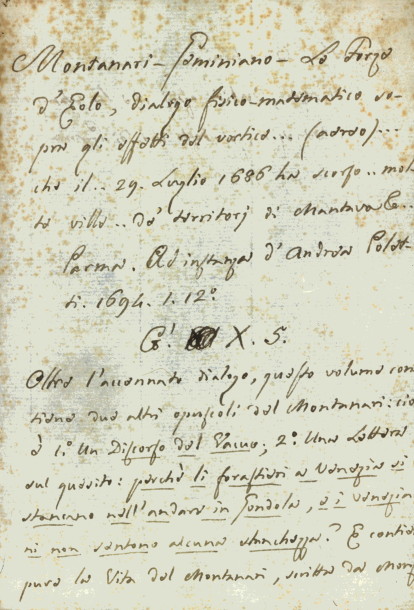 Montanari - Geminiano - Le Forze
d'Eolo, dialogo fisico-matematico so-
pra gli effetti del vortice... (aereo)...
che il.. 29. Luglio 1686 ha scorso.. mol-
te ville.. de' territorj di Mantova e..
Parma. Ad instanza d'Andrea Polet-
ti. 1694. 1. 12°
X. 5.
Oltre l'accennato dialogo, questo volume con
tiene due altri opuscoli del Montanari: cio
è 1.° Un Discorso del Vacuo; 2.° Una Lettera
sul quesito: perchè li forastieri a Venezia si
stancano nell'andare in Gondola, e i Venezia
ni non sentono alcuna stanchezza? E contie
pure la Vita del Montanari, scritta da